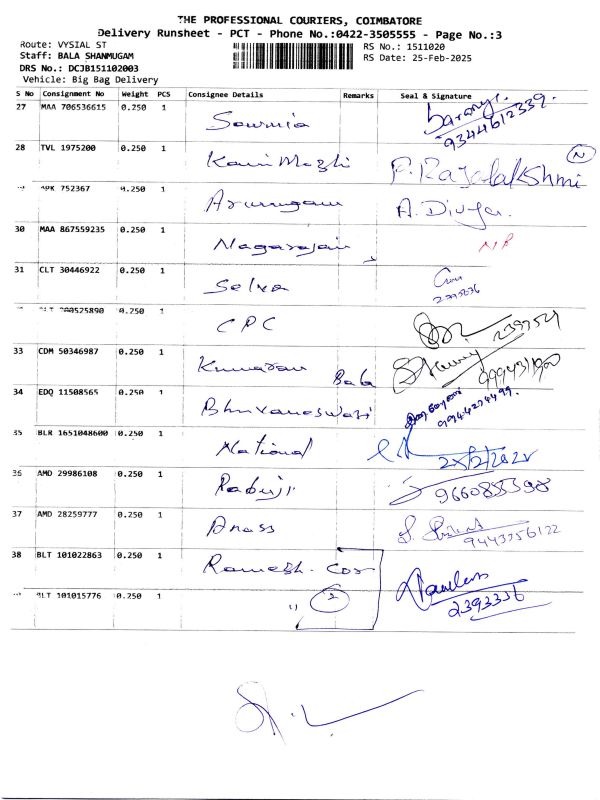 THE PROFESSIONAL COURIERS, COIMBATORE
Delivery Runsheet - PCT - Phone No.:0422-3505555 - Page No.:3
Route: VYSIAL ST
RS No.: 1511020
Staff: BALA SHANMUGAM
RS Date: 25-Feb-2025
DRS No.: DCJB151102003
Vehicle: Big Bag Delivery
S No Consignment No Weight PCS Consignee Details Remarks Seal & Signature
27 MAA 706536615 0.250 1 Sowmia Saranya. 9344612339.
28 TVL 1975200 0.250 1 Kani Mozhi P. Rajalakshmi N
752367 0.250 1 Arumugam A. Divya.
30 MAA 867559235 0.250 1 Nagarajan NR
31 CLT 30446922 0.250 1 Selva
0.250 1 CPC
33 CDM 50346987 0.250 1 Kumaran Bala
34 EDQ 11508565 0.250 1 Bhuvaneswari 9944274499.
35 BLR 1651048600 0.250 1 National 25/2/2025
36 AMD 29986108 0.250 1 Rabuji
37 AMD 28259777 0.250 1 Anass 9443356122
38 BLT 101022863 0.250 1 Ramesh. Cos
101015776 0.250 1 " 2 2393336